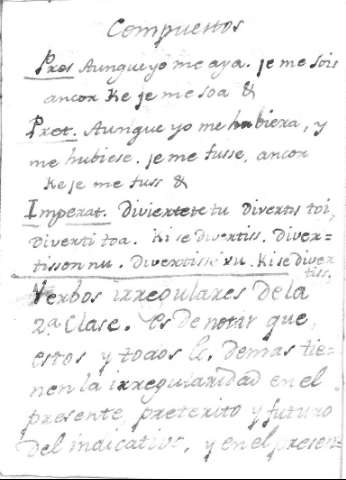 Compuestos
Pres. Aunque yo me aya. je me sois
ancor ke je me soa &
Pret. Aunque yo me hubiera, y
me hubiese. je me fusse, ancor
ke je me fuss &
Imperat. Diviertete tu divertis toi,
diverti toa. ki se divertiss. Diver=
tisson nu. Divertissé vu. Ki se diver
tiss.
Verbos irregulares de la
2ª Clase. es de notar que,
estos y todos lo. demas tie-
nen la irregularidad en el
presente, preterito y futuro
del indicativo, y en el presen-